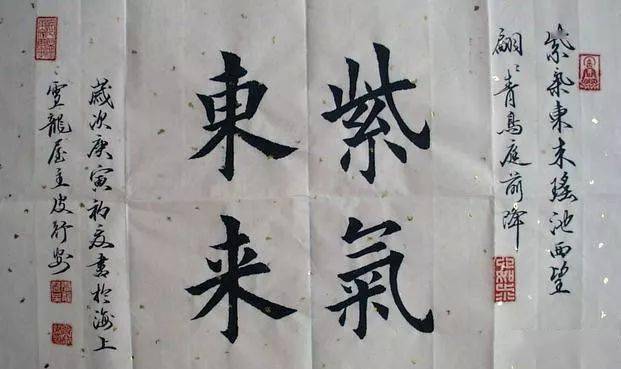 紫氣東来瑤池西望
翩〻青鳥庭前降
紫氣
東来
歲次庚寅初夏書於海上
雲龍屋主皮行